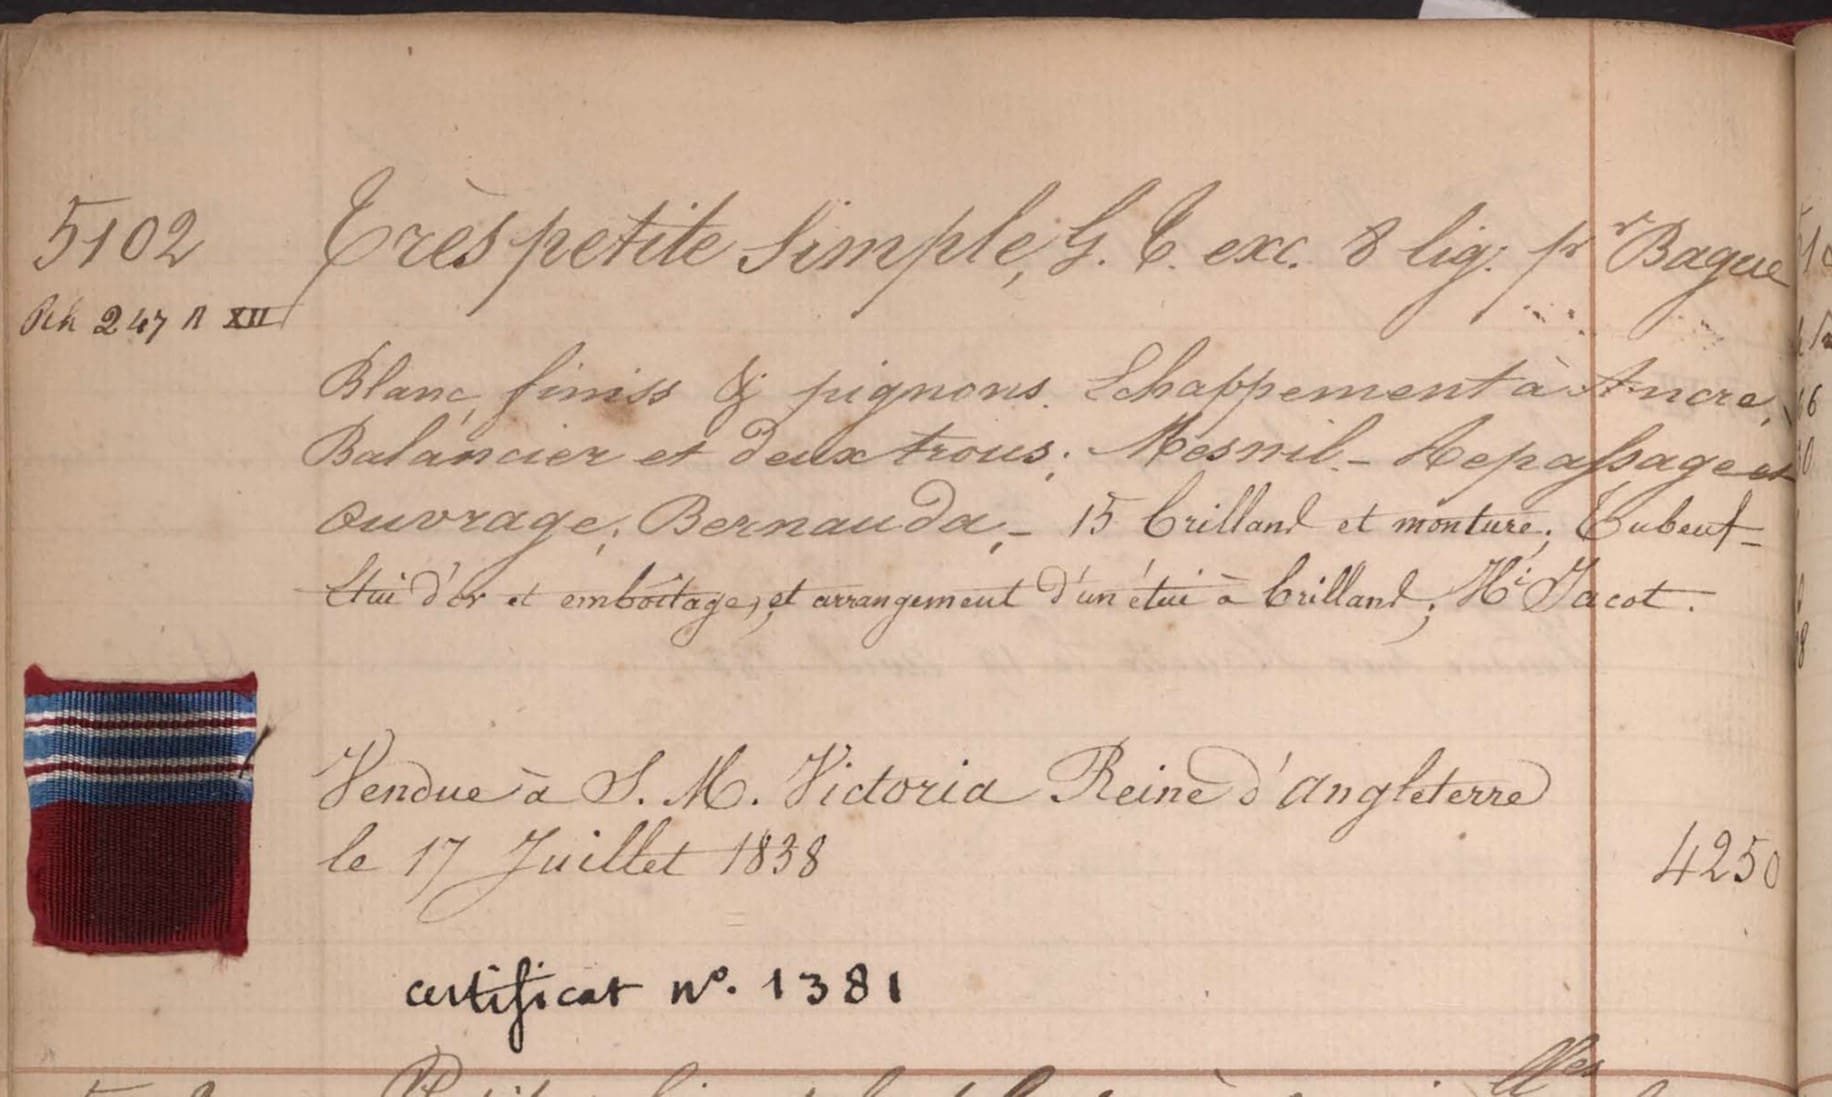 5102 Très petite Simple, G. T. exc. 8 lig. pr Bague
247 R XII
Blanc, finiss & pignons. Echappement à Ancre,
Balancier et deux trous; Mesnil - Repassage et
ouvrage; Bernauda, - 15 brillans et monture; Tubeuf -
Etui d'or et emboîtage, et arrangement d'un étui à brillans; Hi Jacot.
Vendue à S. M. Victoria Reine d'Angleterre
le 17 Juillet 1838 4250
certificat no. 1381